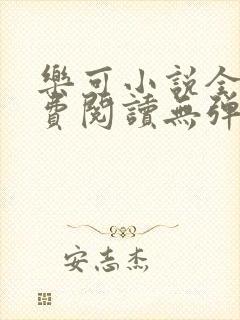 樂可小說全
費閱讀無彈
安志杰